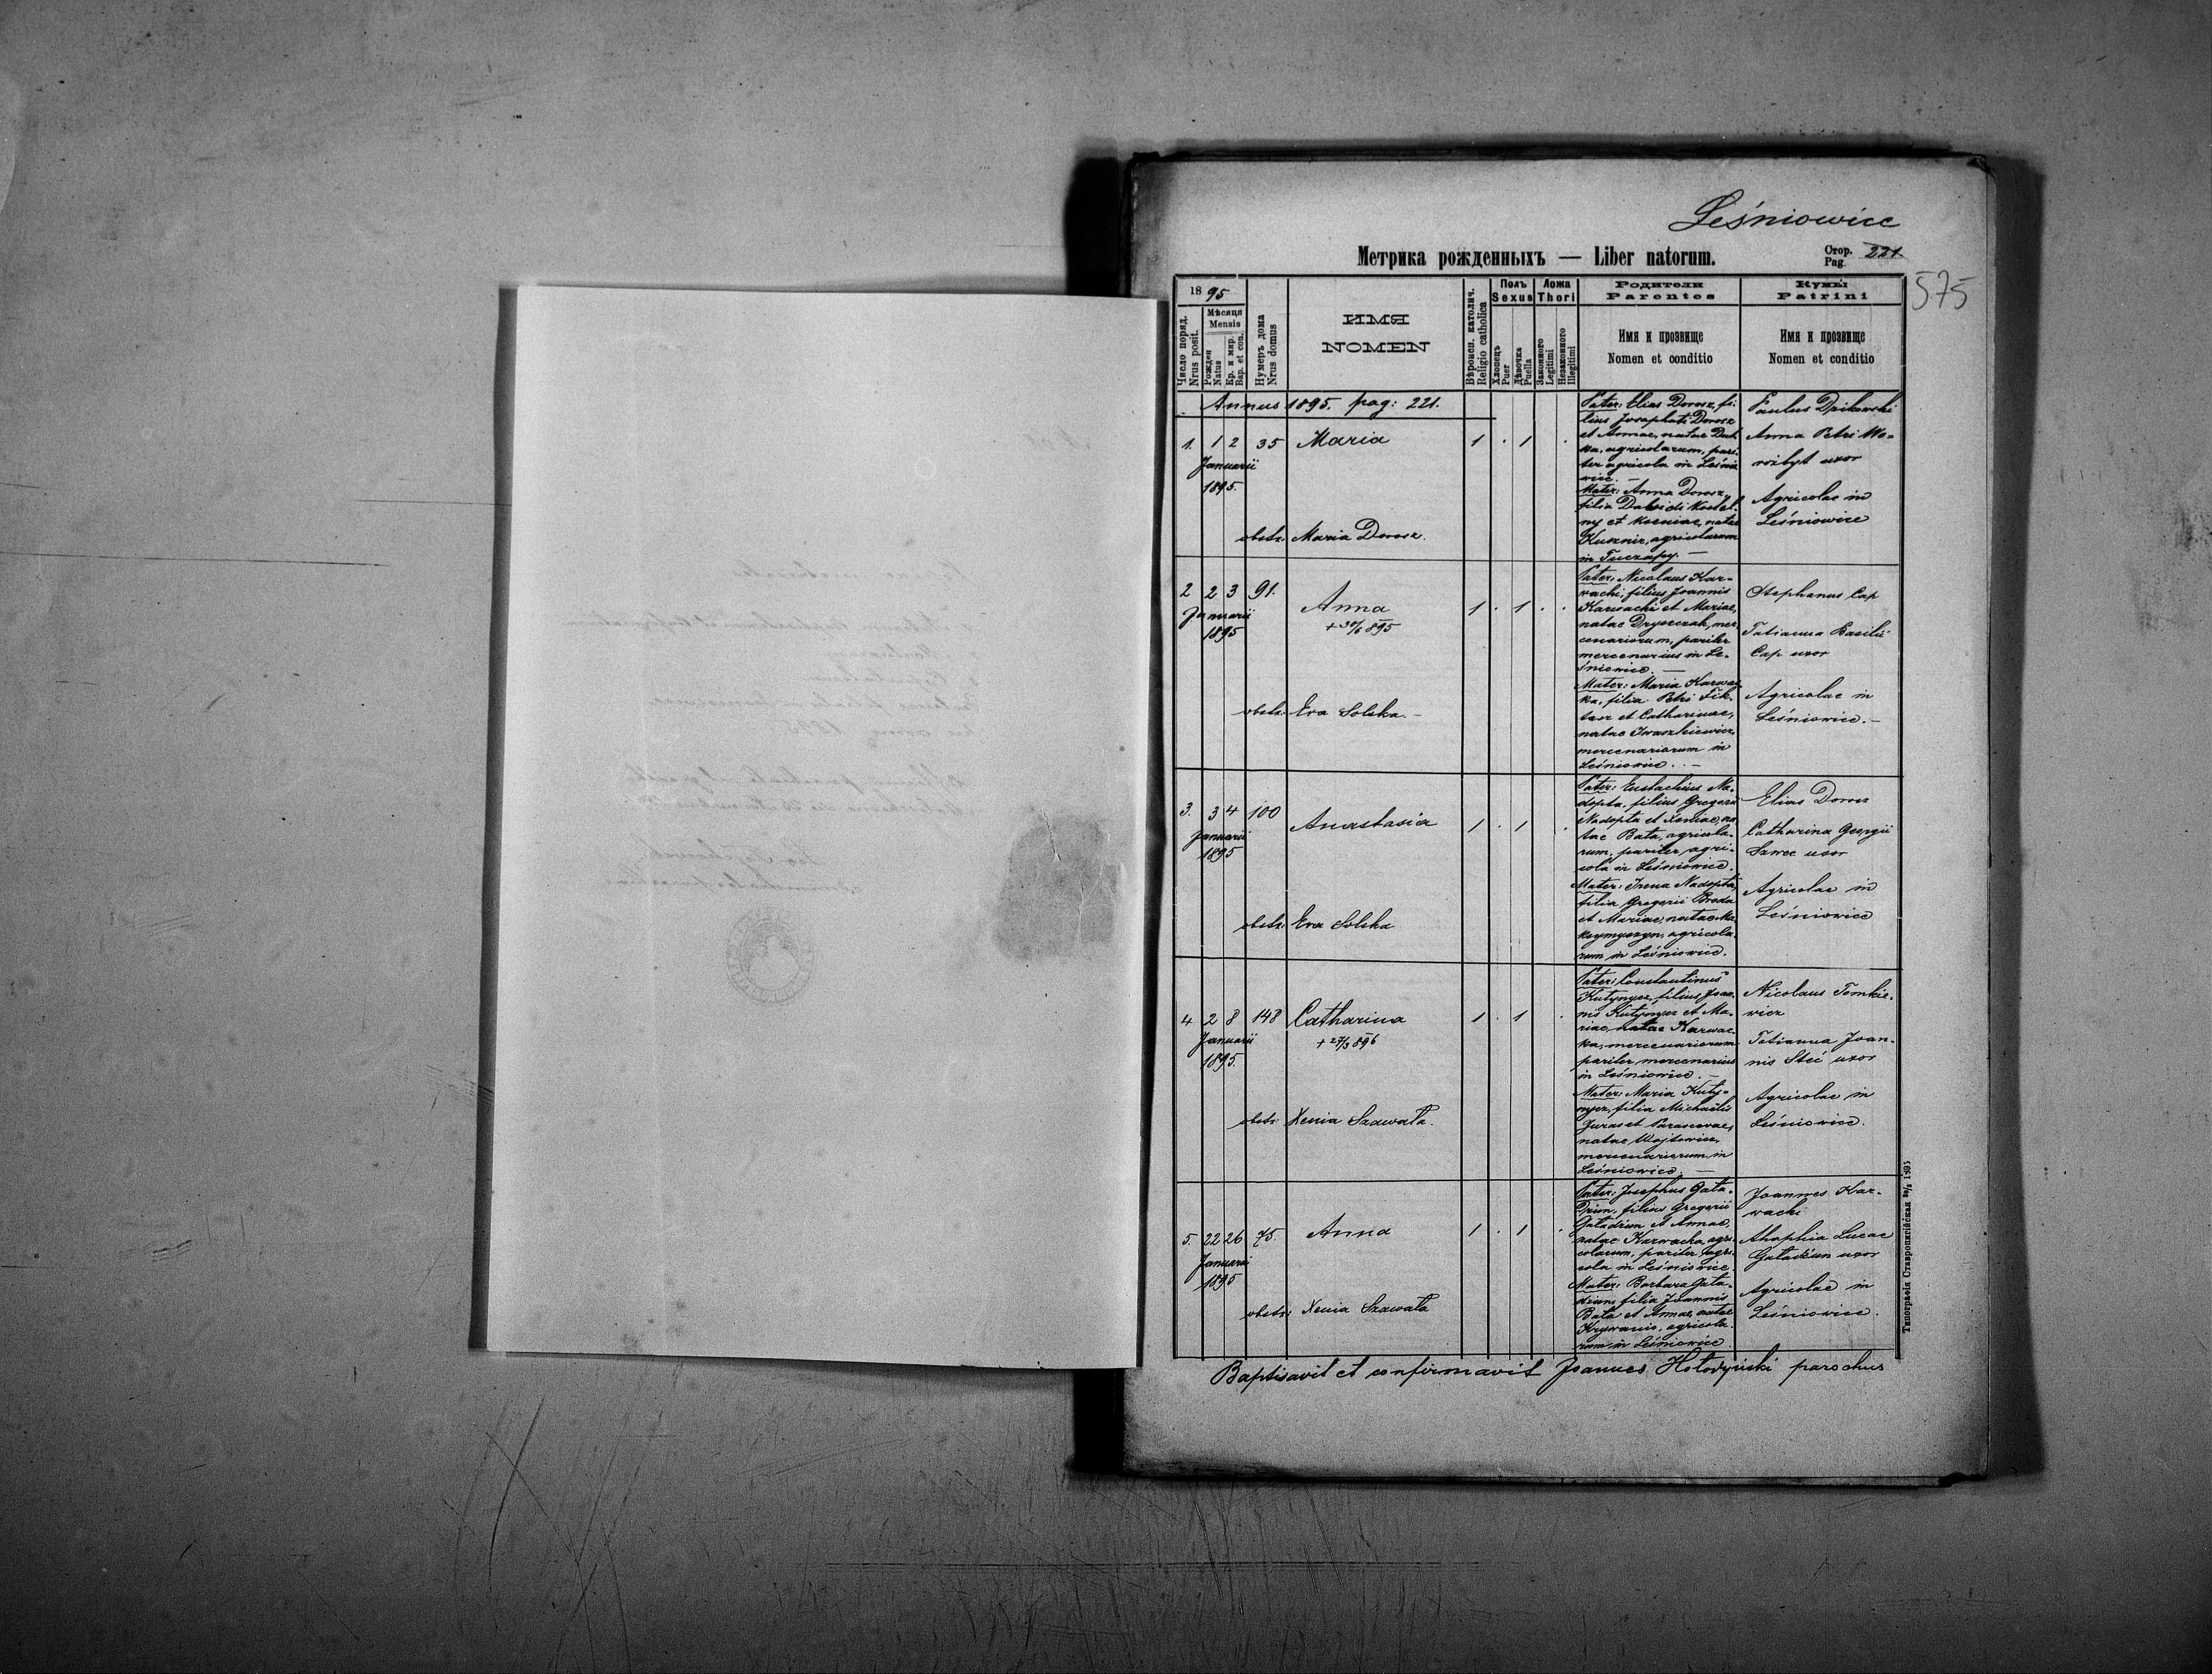 Leśniowice
Метрика рожденныхъ — Liber natorum.
Стор.
Pag. 221
575
18 95
Число поряд.
Nrus posit.
Мѣсяця
Mensis
Рожден
Natus
Кр. и мир.
Bap. et con.
Нумеръ дома
Nrus domus
ИМЯ
NOMEN
Вѣроисп. католич.
Religio catholica
Полъ
Sexus
Хлопець
Puer
Дѣвочка
Puella
Ложа
Thori
Законного
Legitimi
Незаконного
Illegitimi
Родители
Parentes
Имя и прозвище
Nomen et conditio
Кумы
Patrini
Имя и прозвище
Nomen et conditio
Annus 1895. pag: 221.
1. 1 2 35 Maria 1 . 1 .
Januarii
1895.
obstr. Maria Dorosz.
Pater: Elias Dorosz, fi-
lius Josaphati Dorosz
et Annae, natae
agricolarum, pari-
ter agricola in Leśnio-
wice. —
Mater: Anna Dorosz,
filia Davidi Kostel-
ny et Kseniae, natae
Kusznir, agricolarum
in Tuczapy. —
Paulus
Anna Petri Wo-
roibyt uxor
Agricolae in
Leśniowice
2 2 3 91. Anna 1 . 1 . .
Januarii
1895
+ 30/6 895
obstr. Eva Solska. —
Pater: Nicolaus Kar-
wacki, filius Joannis
Karwacki et Mariae,
natae Dryszczak, mer-
cenariorum, pariter
mercenarius in Le-
śniowice. —
Mater: Maria Karwac-
ka, filia Petri Fik-
tasz et Catharinae,
natae Iwaszkiewicz,
mercenariorum in
Leśniowice. —
Stephanus Cap
Tatianna Basilii
Cap uxor
Agricolae in
Leśniowice. —
3. 3 4 100 Anastasia 1 . 1 .
Januarii
1895
obstr. Eva Solska
Pater: Eustachius Na-
dopta, filius Gregorii
Nadopta et Xeniae, na-
tae Bata, agricola-
rum, pariter agri-
cola in Leśniowice.
Mater: Irena Nadopta,
filia Gregorii Breda
et Mariae, natae Ma-
ksymyszyn, agricola-
rum in Leśniowice.
Elias Dorosz
Catharina Georgii
Szwec uxor
Agricolae in
Leśniowice
4 2 8 148 Catharina 1 . 1 .
Januarii
1895.
+ 27/3 896
obstr. Xenia Szawała.
Pater: Constantinus
Kutynycz, filius Joan-
nis Kutynycz et Ma-
riae, natae Karwac-
ka, mercenariorum
pariter mercenarius
in Leśniowice. —
Mater: Maria Kuty-
nycz, filia Michaelis
Juras et Parascevae,
natae Wojtowicz,
mercenariorum, in
Leśniowice. —
Nicolaus Tomkie-
wicz
Tatianna Joan-
nis Steć uxor
Agricolae in
Leśniowice.
5. 22 26 75. Anna 1 . 1 .
Januarii
1895
obstr: Xenia Szawała
Pater: Josephus Gała-
dżun, filius Gregorii
Gaładżun et Annae,
natae Karwacka, agri-
colarum, pariter agri-
cola in Leśniowice
Mater: Barbara Gała-
dżun, filia Joannis
Bała et Annae, natae
Krywanio, agricola-
rum, in Leśniowice.
Joannes Kar-
wacki
Ahaphia Lucae
Gaładżun uxor
Agricolae in
Leśniowice.
Baptisavit et confirmavit Joannes Hołodyński parochus
Типографія Ставропигійская 1895